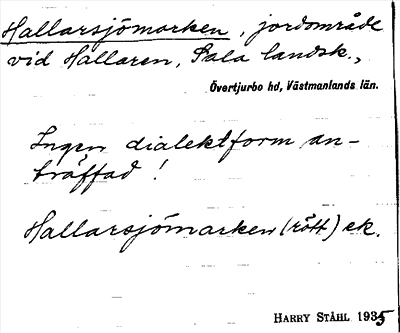 Hallarsjömarken, jordområde
vid Hallaren, Sala landsk.,
Övertjurbo hd, Västmanlands län.
Ingen dialektform an-
träffad !
Hallarsjömarken (rött) ek.
HARRY STÅHL 1935